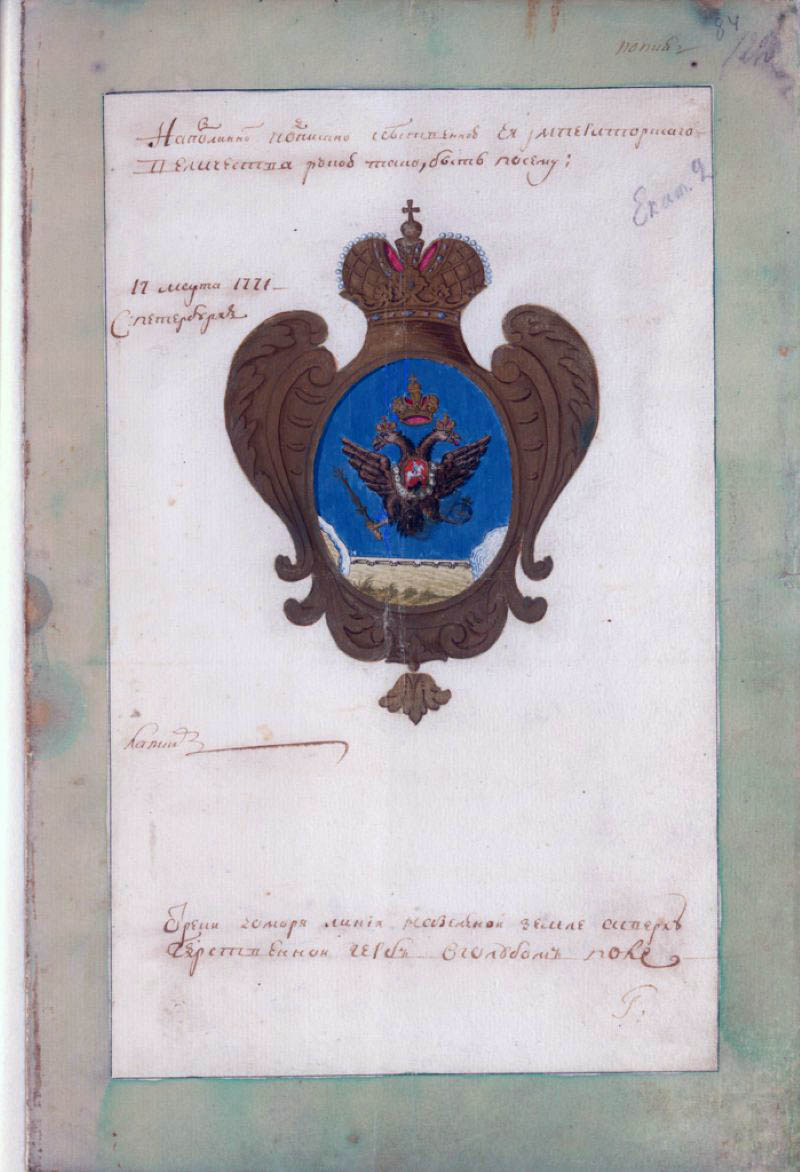 84
На подлинно подписано собственною Ея императорскаго
Величества рукою тако, быть посему;
Екат. 2
17 марта 1771
С: петербургъ
Копия
моря линия на земле а верхъ
гербъ в голубомъ поле
Г.